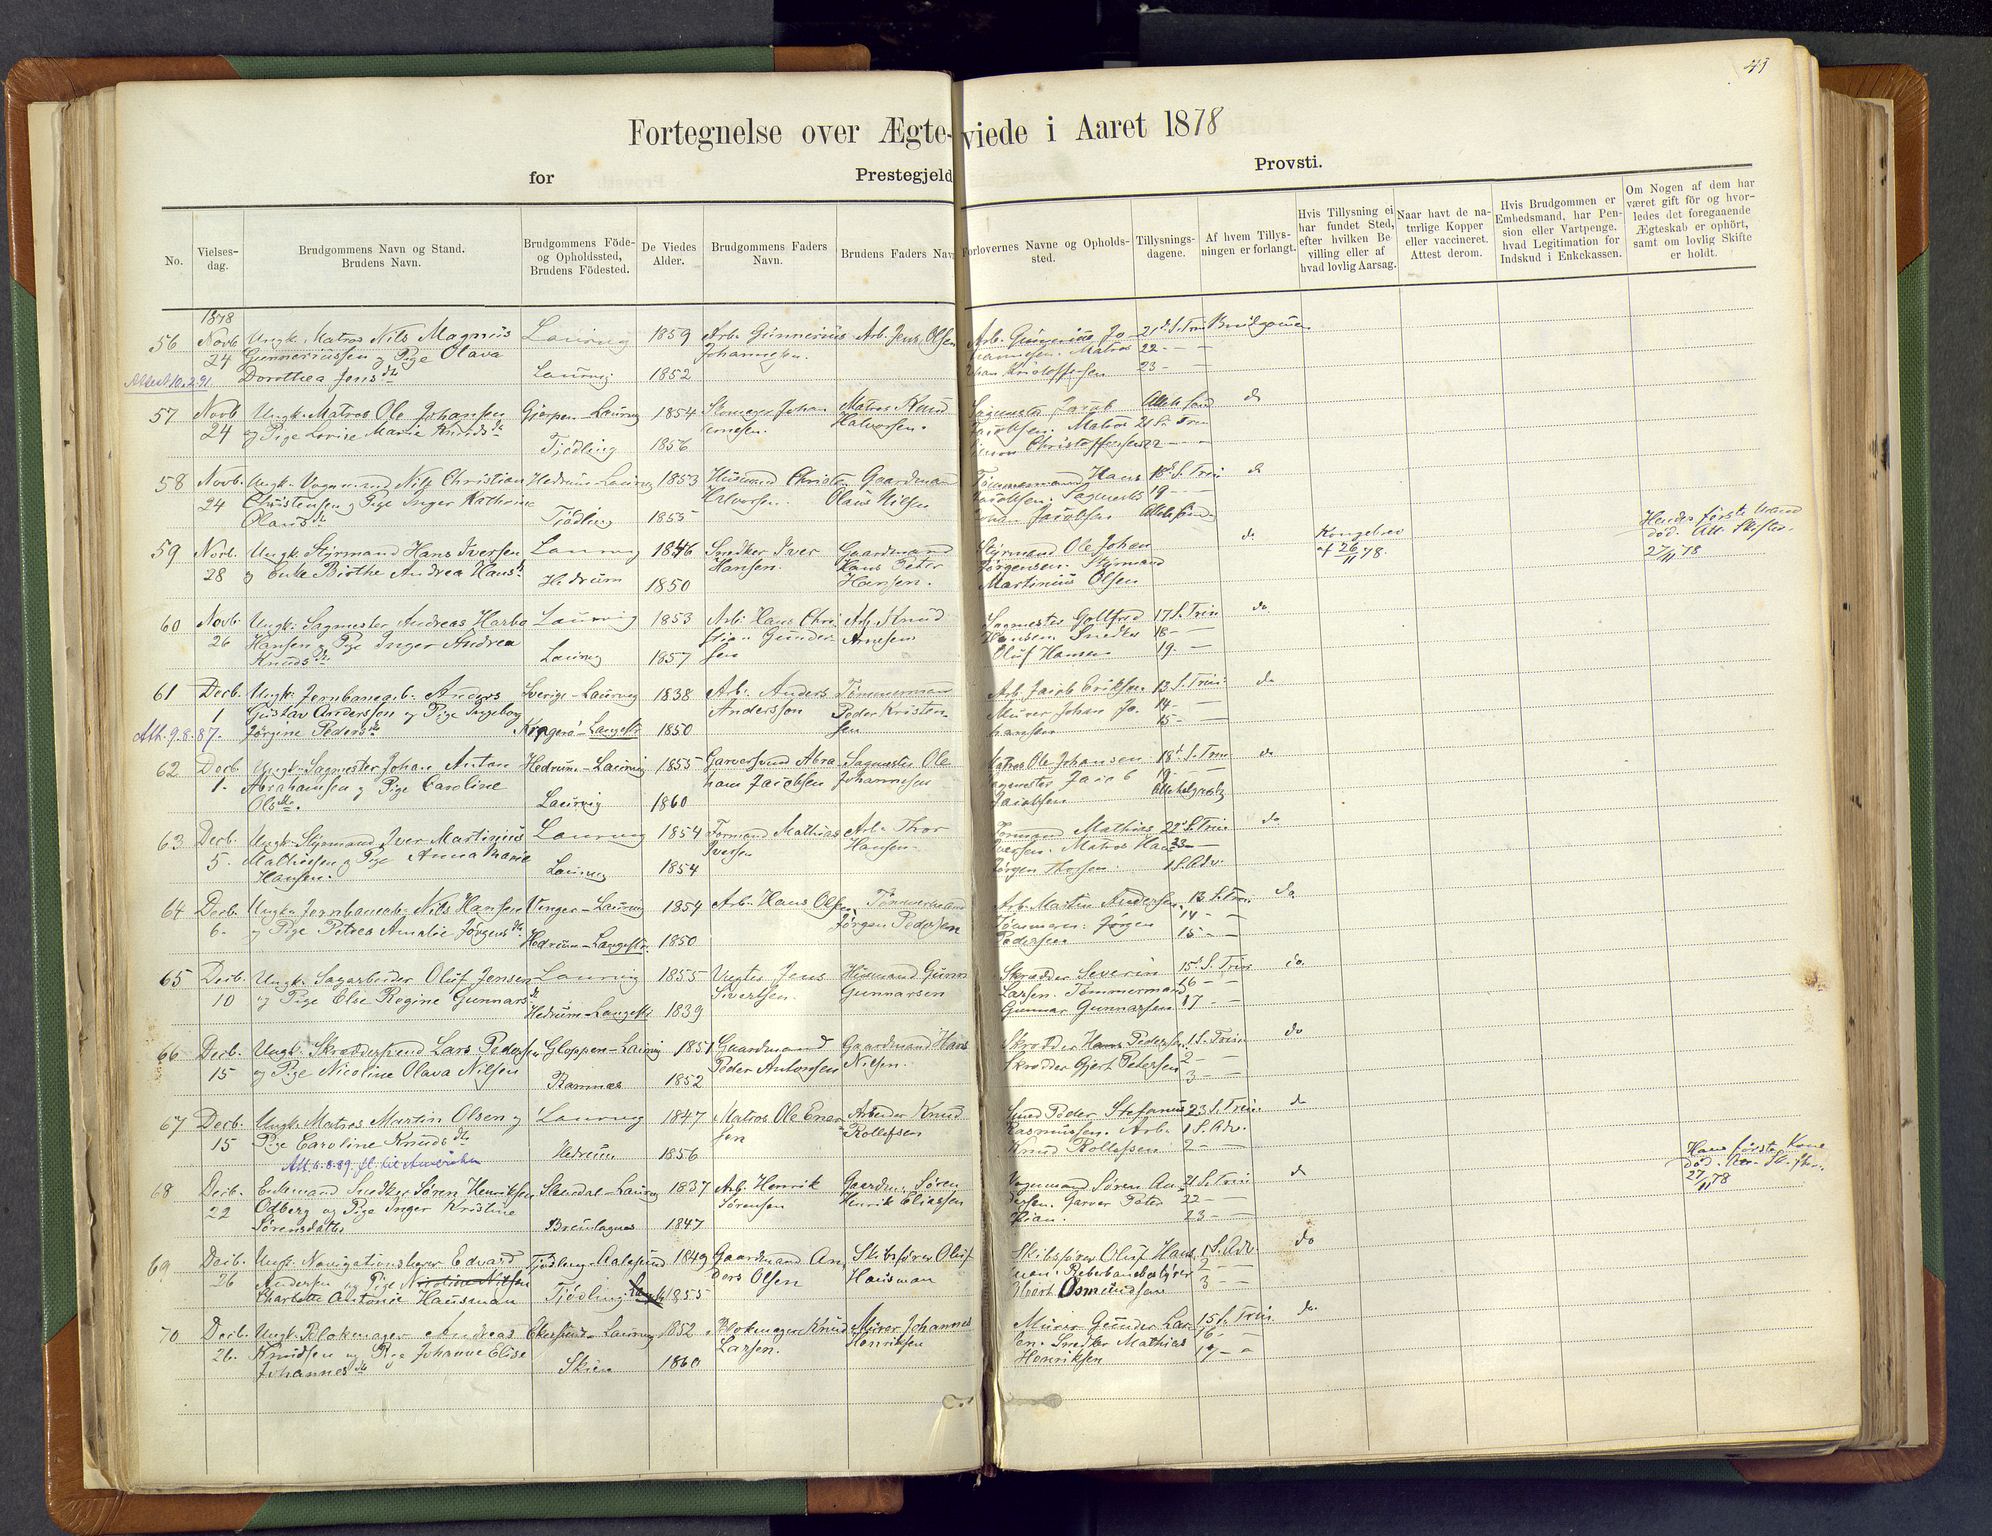 41
Fortegnelse over Ægteviede i Aaret 1878
for Prestegjeld Provsti.
No.
Vielses-
dag.
Brudgommens Navn og Stand.
Brudens Navn.
Brudgommens Föde-
og Opholdssted,
Brudens Födested.
De Viedes
Alder.
Brudgommens Faders
Navn.
Brudens Faders Navn
Forlovernes Navne og Opholds-
sted.
Tillysnings-
dagene.
Af hvem Tillys-
ningen er forlangt.
Hvis Tillysning ei
har fundet Sted,
efter hvilken Be-
villing eller af
hvad lovlig Aarsag.
Naar havt de na-
turlige Kopper
eller vaccineret.
Attest derom.
Hvis Brudgommen er
Embedsmand, har Pen-
sion eller Vartpenge.
hvad Legitimation for
Indskud i Enkekassen.
Om Nogen af dem har
været gift för og hvor-
ledes det foregaaende
Ægteskab er ophört,
samt om lovlig Skifte
er holdt.
1878
56 Novb Ungk. Matros Nils Magnus Laurvig 1859 Arb. Gunnerius Arb. Jens Olsen Arb. Gunnerius Jo 21d S. Trin Brudgommen
24 Gunneriussen og Pige Olava Johannesen. Matros 22 — —
Attest 10.2.91. Dorothea Jensdtr Laurvig 1852 Kristoffersen 23 — —
57 Novb Ungk. Matros Ole Johansen Gjerpen - Laurvig 1854 Johan Matros Knud Sagmester Jacob do
24 og Pige Lovise Marie Knudsdtr Arnesen. Halvorsen. Jacobsen. Matros 21 S. Trin
Tjödling 1856 Christoffersen 22 — —
58 Novb. Ungk. Vognmand Nils Christian Hedrum - Laurvig 1853 Husmand Christen Gaardmand Tömmermand Hans 18d S. Trin do
24 Christensen og Pige Inger Kathrine Halvorsen Olaus Nilsen Jacobsen. Sagmester 19 — —
Olausdtr Tjödling 1855 Johan Jacobsen
59 Novb. Ungk. Styrmand Hans Iversen Laurvig 1846 Snedker Iver Gaardmand Styrmand Ole Johan do Kongebrev Hendes første Mand
28 og Enke Birthe Andrea Hansdtr Hansen. Hans Peter Jörgensen. Styrmand af 26/11 78. død. Att. Skifter.
Hedrum 1850 Hansen. Martinius Olsen 27/11 78
60 Novb. Ungk. Sagmester Andreas Laurvig 1853 Arb. Hans Chri Arb. Knud Sagmester Gottfred 17 S. Trin do
26 Hansen og Pige Inger Andrea stian Gunder Arnesen Hansen Snedker 18 —
Knudsdtr Laurvig 1857 sen Oluf Hansen 19. —
61 Decb. Ungk. Jernbanearb. Anders Sverige - Laurvig 1838 Arb. Anders Tömmermand Arb. Jacob Eriksen 13 S. Trin do
1 Gustav Anderssen og Pige Ingeborg Anderssön Peder Kristen- Murer Johan Jo 14 — —
Att. 9.8.87. Jörgine Pedersdtr Kragerö - Langestr 1850 sen hansen 15 — —
62 Decb. Ungk. Sagmester Johan Anton Hedrum - Laurvig 1855 Garversvend Abra Sagmester Ole Matros Ole Johansen 18d S. Trin do
1. Abrahamsen og Pige Caroline ham Jacobsen Johannesen Sagmester Jacob 19. —
Olsdtr. Laurvig 1860 Jacobsen
63 Decb. Ungk. Styrmand Iver Martinius Laurvig 1854 Formand Mathias Arb. Thor Formand Mathias 22d S. Trin do
5. Mathiesen og Pige Anna Marie Iversen Hansen Iversen. Matros Hans 23 —
Hansen. Laurvig 1854 Jörgen Thorsen. 1 S. Adv.
64 Decb. Ungk. Jernbanearb. Nils Hansen Vinger - Laurvig 1854 Arb. Hans Olsen Arb. Martin Andersen. 13 S. Trin do
6. og Pige Petrea Amalie Jörgensdtr Jörgen Pedersen Tömmerm. Jörgen 14 — —
Hedrum - Langestr. 1850 Pedersen 15 — —
65 Decb. Ungk. Sagarbeider Oluf Jensen Laurvig 1855 Vægter Jens Husmand Gunnar Skrædder Severin 15d S. Trin do
10 og Pige Else Regine Gunnarsdtr Sivertsen. Gunnarsen Larsen. Tömmermand 16 — —
Hedrum - Langestr 1839 Gunnar Gunnarsen 17 — —
66 Decb. Ungk. Skræddersvend Lars Pedersen Gloppen - Laurvig 1851 Gaardmand Gaardmand Hans Skrædder Hans Pedersen 1 S. Trin do
15 og Pige Nicoline Olava Nilsen Peder Antonsen Nilsen. Skrædder Gjert Petersen 2 — —
Ramnæs 1852 3 — —
67 Decb. Ungk. Matros Martin Olsen og Laurvig 1847 Matros Ole Ener Arbeider Knud Smed Peder Stefanus 23 S. Trin. do
15 Pige Caroline Knudsdtr sen Rollefsen Rasmussen. Arb. 1 S. Adv.
Att. 6.8.89. fl. til Amerika Hedrum 1856 Knud Rollefsen 2 — —
68 Decb. Enkemand Snedker Sören Henriksen Laurvig 1837 Arb. Henrik Gaardm. Sören Vognmand Sören An 21 S. Trin do Hans første Kone
22 Odberg og Pige Inger Kristine Sörensen Henrik Eliassen dersen. Garver Peter 22 — — død.
Sörensdatter Brunlagnes 1847 23 — — 27/11 78
69 Decb. Ungk. Navigationslærer Edvard Tjödling - Aalesund 1849 Gaardmand An Skibsförer Oluf Skibsförer Oluf Haus 1 S. Adv. do
26 Andersen og Pige Nicoline Nilsen ders Olsen Hausman man. Reberbanebestyrer 2 — —
Charlotte Antonie Hausman Tjödling 1855 Osmundsen 3 — —
70 Decb. Ungk. Blokmager Andreas Laurvig 1852 Blokmager Knud Murer Johannes Murer Gunder Lar 15 S. Trin do
26. Knudsen og Pige Johanne Elise Larsen. Henriksen sen. Snedker Mathias 16 — —
Johannesdtr Skien 1860 Henriksen 17 — —